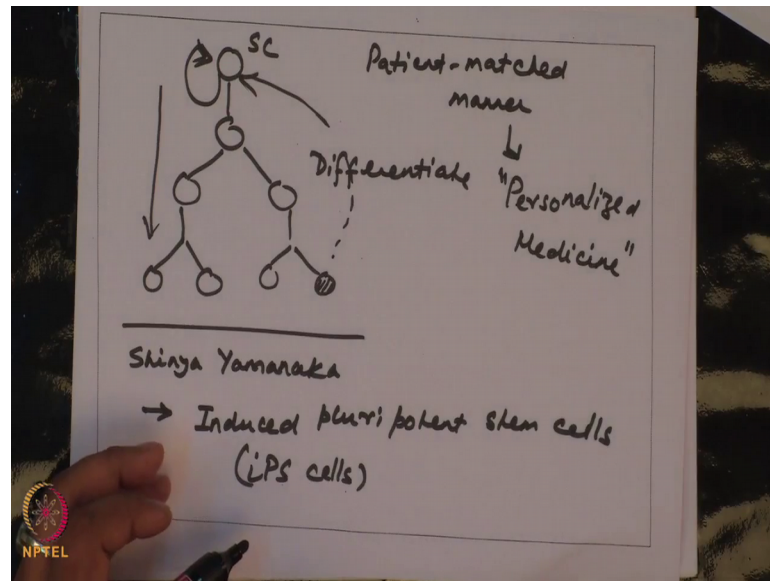 SC
Patient-matched
manner
Differentiate
"Personalized
Medicine"
Shinya Yamanaka
→ Induced pluripotent stem cells
(iPS cells)
NPTEL